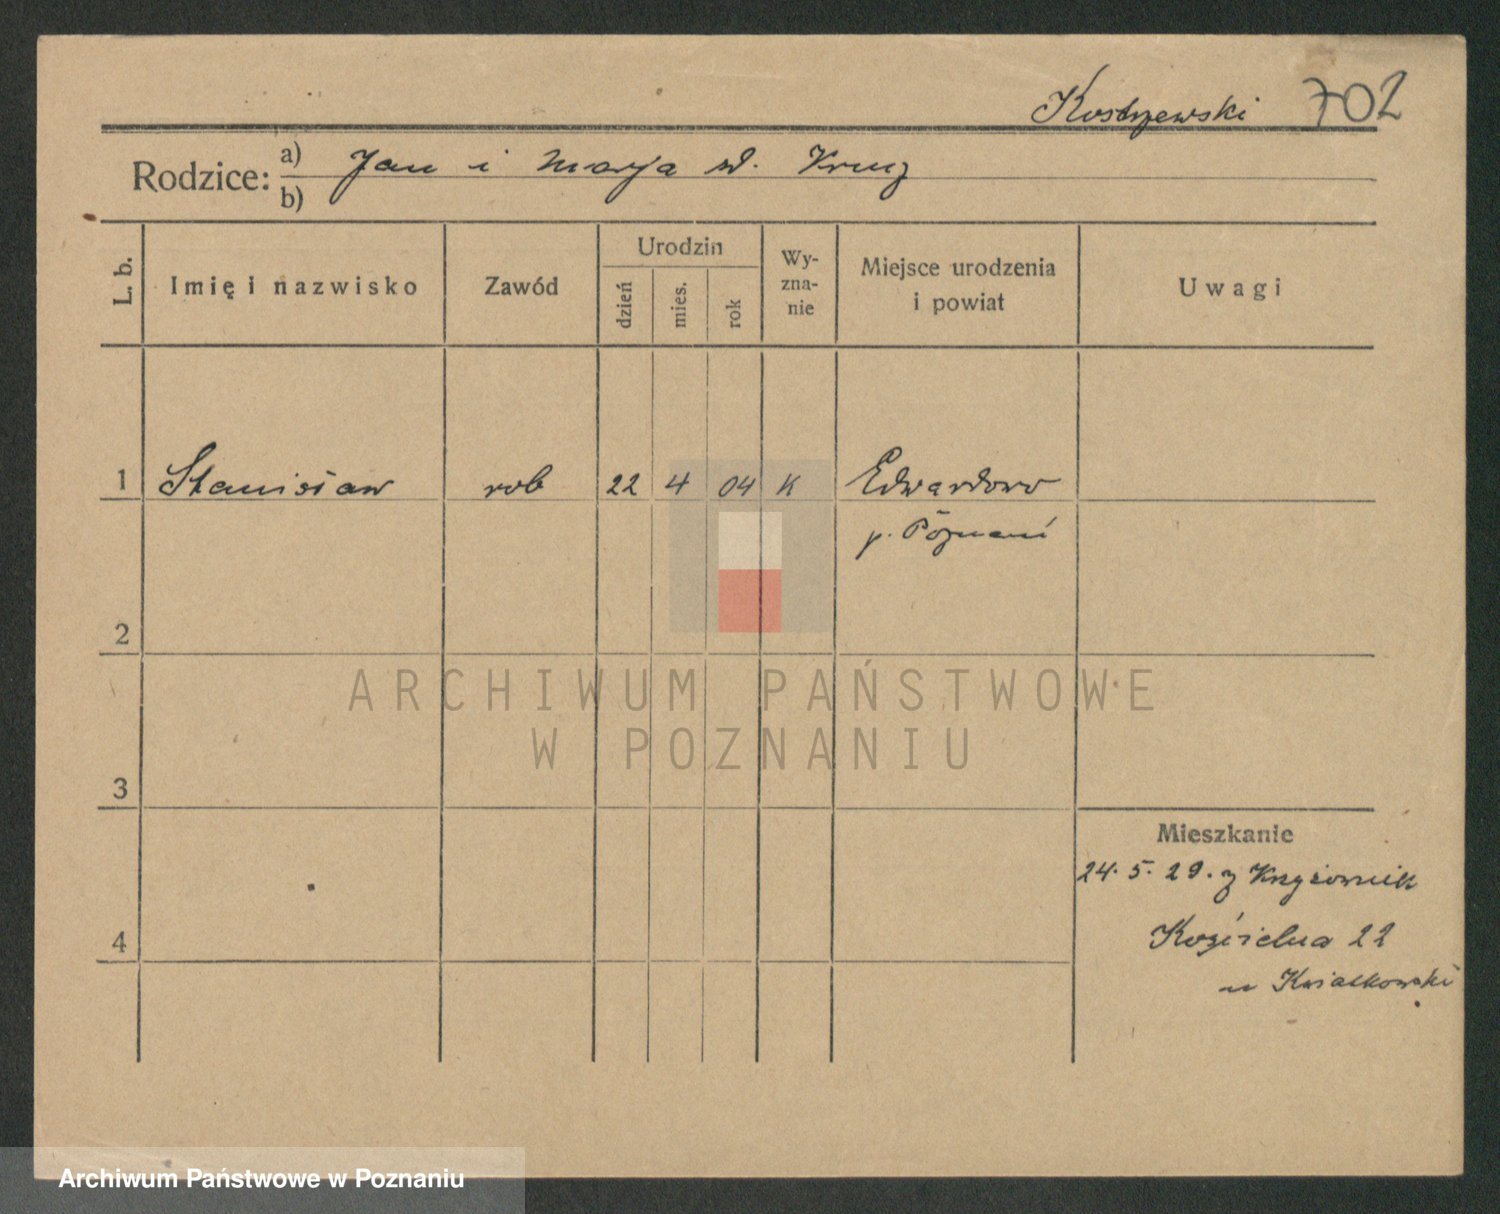 Kostrzewski 702
Rodzice: a) Jan i Marja zd. Krug
b)
L. b. Imię i nazwisko Zawód Urodzin dzień mies. rok Wy-zna-nie Miejsce urodzenia i powiat Uwagi
1 Stanisław rob 22 4 04 K Edwardowo
p. Poznań
2
3
Mieszkanie
24. 5. 29. z Krzyżownik
4 Kościelna 22
u Kwiatkowski
ARCHIWUM PAŃSTWOWE
W POZNANIU
Archiwum Państwowe w Poznaniu